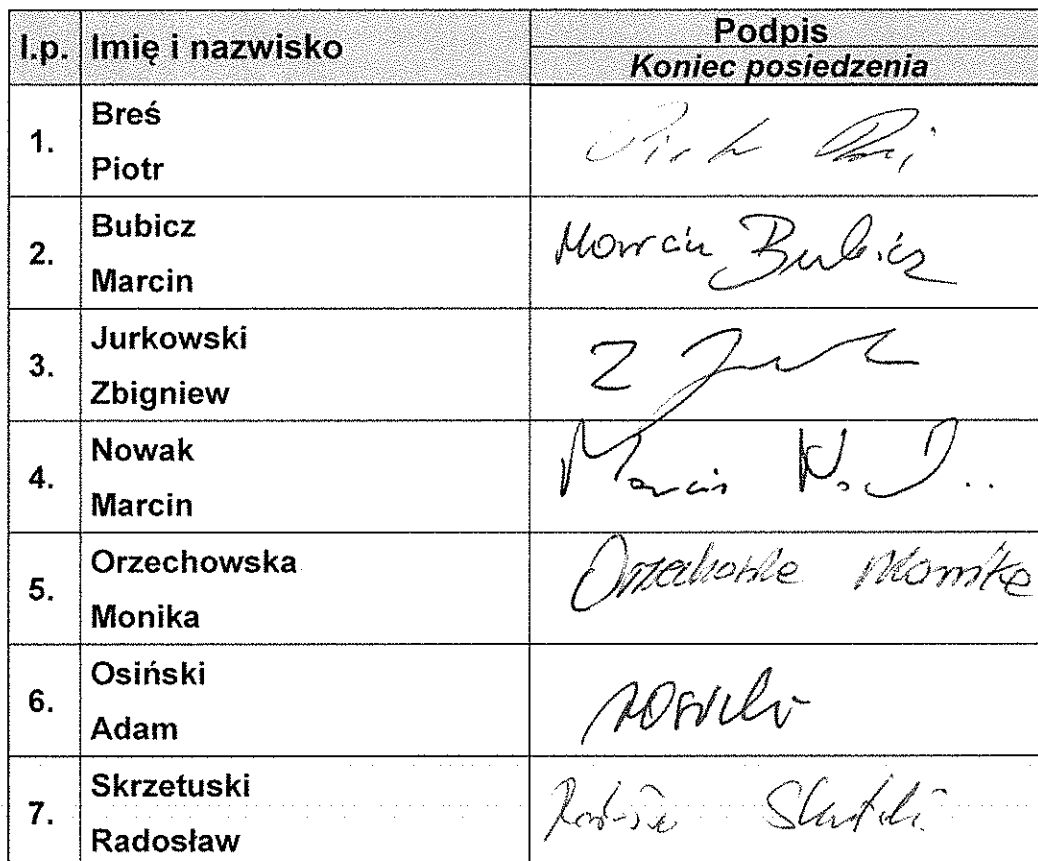 l.p. Imię i nazwisko Podpis
Koniec posiedzenia
1. Breś
Piotr
2. Bubicz
Marcin
Marcin Bubicz
3. Jurkowski
Zbigniew
Z
4. Nowak
Marcin
Marcin
5. Orzechowska
Monika
Orzechowska Monika
6. Osiński
Adam
7. Skrzetuski
Radosław